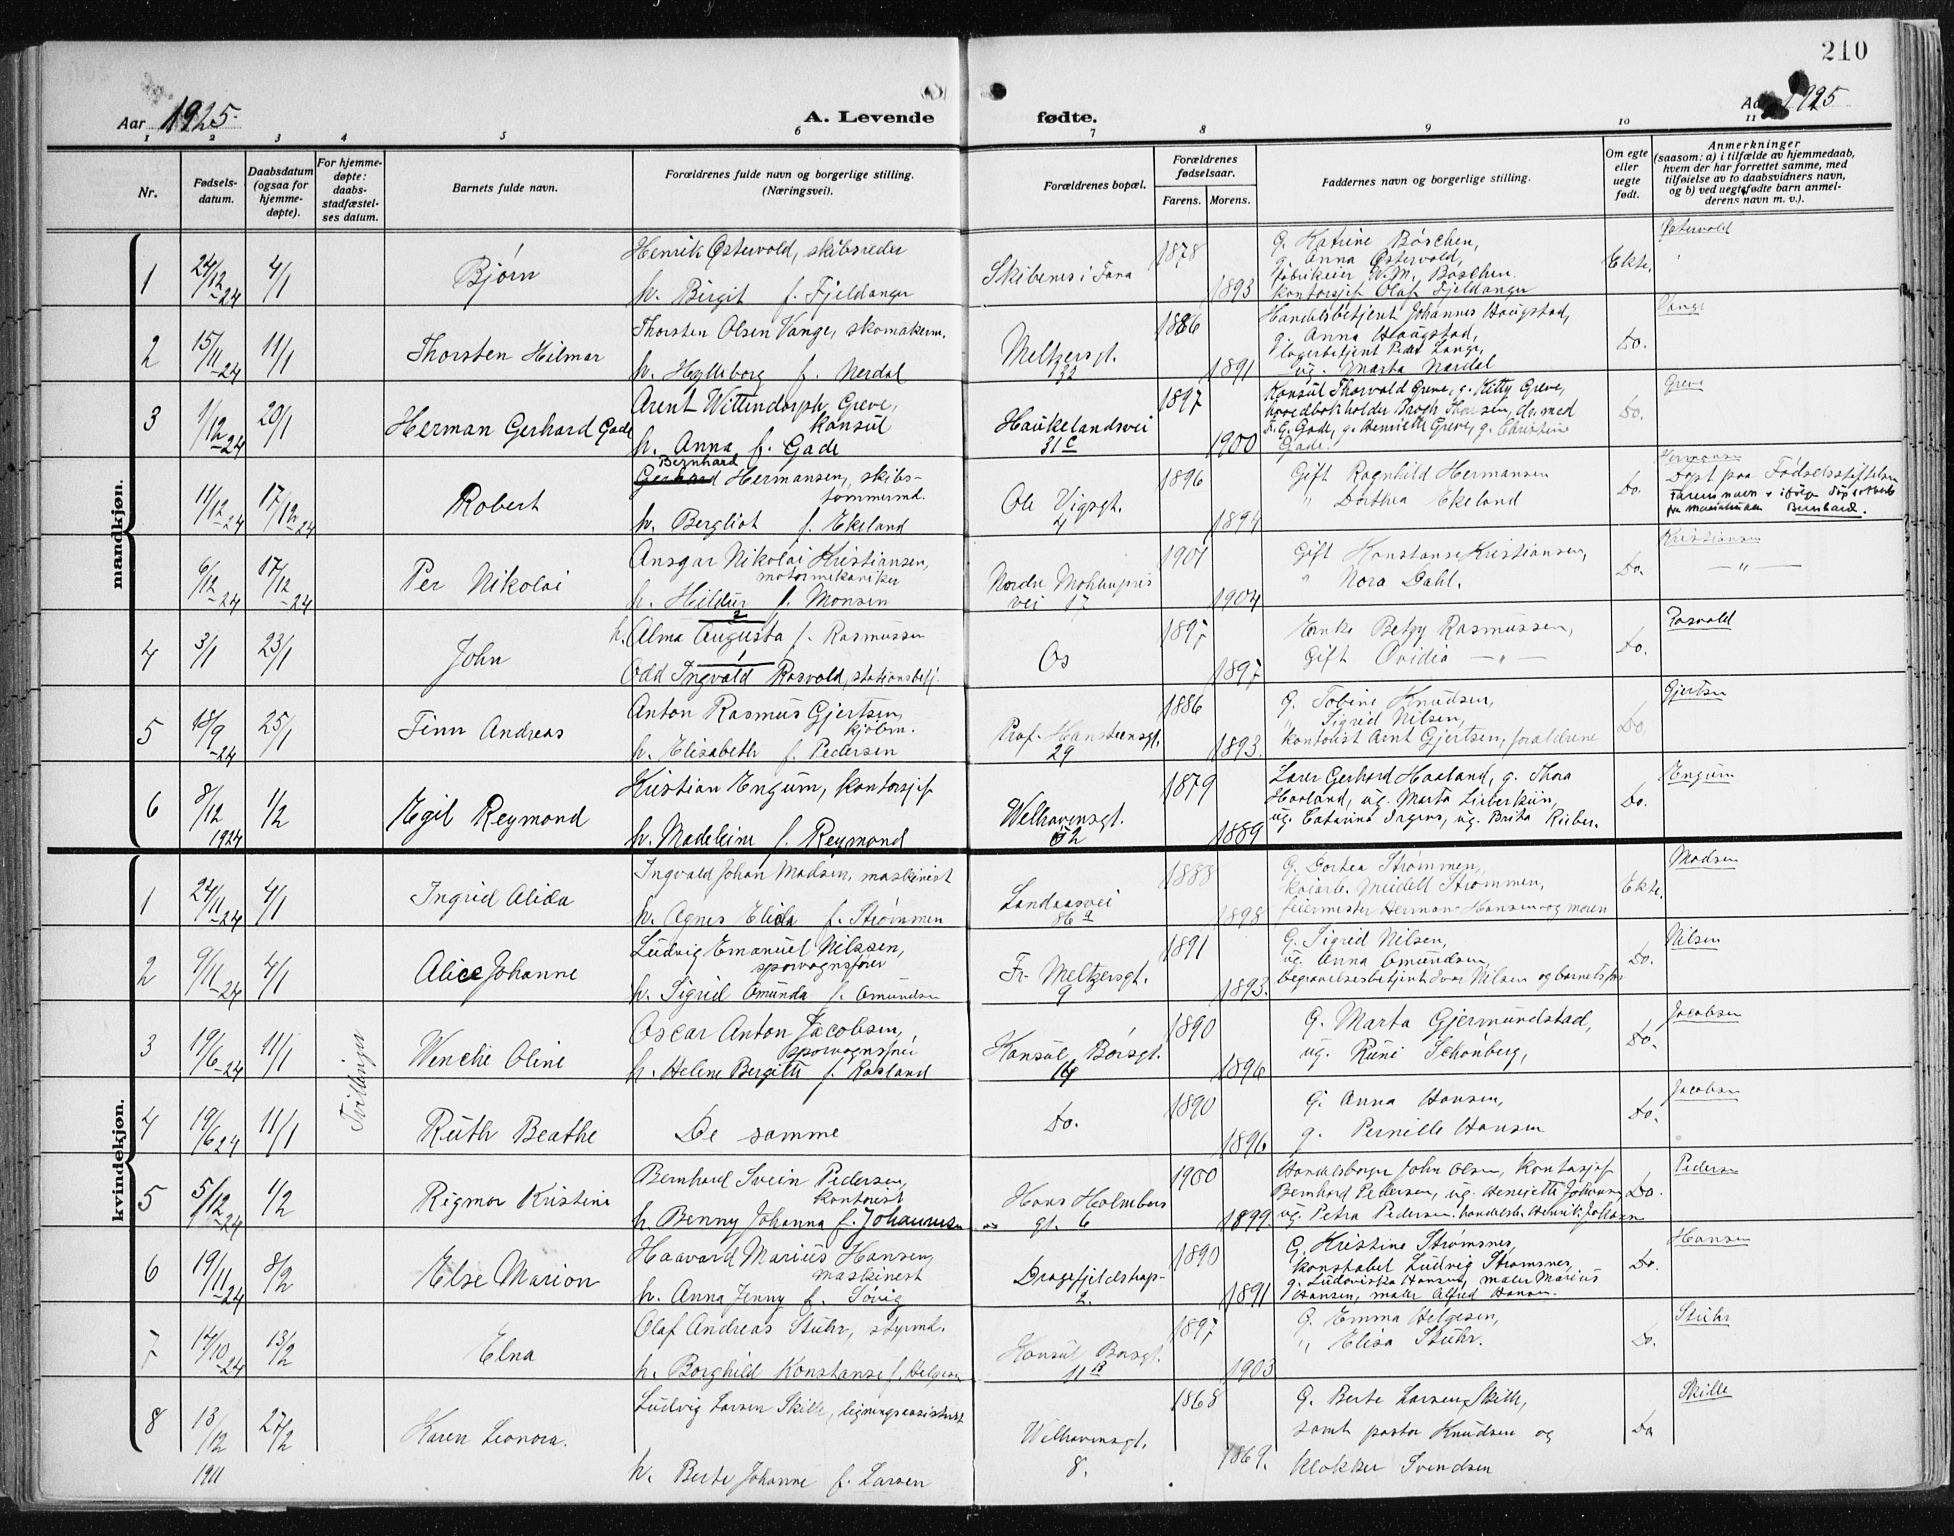 210
Aar 1925
A. Levende fødte.
Aar 1925
1 2 3 4 5 6 7 8 9 10 11
Nr.
Fødsels-
datum.
Daabsdatum
(ogsaa for
hjemme-
døpte).
For hjemme-
døpte:
daabs-
stadfæstel-
ses datum.
Barnets fulde navn.
Forældrenes fulde navn og borgerlige stilling.
(Næringsvei).
Forældrenes bopæl.
Forældrenes
fødselsaar.
Farens. Morens.
Faddernes navn og borgerlige stilling.
Om egte
eller
uegte
født.
Anmerkninger
(saasom: a) i tilfælde av hjemmedaab,
hvem der har forrettet samme, med
tilføielse av to daabsvidners navn,
og b) ved uegte fødte barn anmel-
derens navn m. v.).
mandkjøn.
1 24/12-24 4/1 Bjørn
Henrik Østervold, skibsreder
h. Birgit f. Fjeldanger
Skibenes i Fana 1878 1893
G. Katrine Böschen,
g. Anna Østervold,
Fabrikeier W. M. Böschen.
Kontorsjef Olaf Fjeldanger
Ekte. Østervold
2 15/11-24 11/1 Thorsten Hilmar
Thorsten Olsen Vange, skomakerm.
h. Hylleborg f. Nerdal
Meltzersgt. 132 1886 1891
Handelsbetjent Johannes Haugstad,
g. Anna Haugstad,
lagerbetjent Peder Lange,
ug. Marta Nardal
Do. Vange
3 1/12-24 20/1 Herman Gerhard Gade
Arent Wittendorph Greve,
konsul
h. Anna f. Gade
Haukelandsvei
31c 1897 1900
Konsul Thorvald Greve, g. Kitty Greve,
hovedbokholder Thorsen, dr. med
F. G. Gade, g. Henriette Greve, g. Christine
Gade.
Do. Greve
11/12-24 17/12-24 Robert
Bernhard
Gerhard Hermansen, skibs-
tømmermd.
h. Bergliot f. Ekeland
Ole Vigsgt.
4 1896 1894
Gift Ragnhild Hermansen
" Dorthea Ekeland
Do. Hermansen
Døpt paa Fødselsstiftelsen
Farens navn ifølge Bernhard.
6/12-24 17/12-24 Per Nikolai
Ansgar Nikolai Kristiansen,
motormekaniker
h. Hildur f. Monsen
Nordre Mohlenpris
vei 17 1901 1904
Gift Konstanse Kristiansen,
" Nora Dahl.
Do. Kristiansen
— " —
4 3/1 23/1 John
2
h. Alma Augusta f. Rasmussen
1
Odd Ingvald Rosvold, stationsbetj.
Os 1897 1897
Enke Betzy Rasmussen,
Gift Ovidia — " —
Do. Rosvold
5 18/9-24 25/1 Finn Andreas
Anton Rasmus Gjertsen,
kjøbm.
h. Elisabeth f. Pedersen
Prof. Hansteensgt.
29 1886 1893.
G. Tobine Knudsen,
" Sigrid Nilsen,
Kontorist Arnt Gjertsen, forældrene
Do. Gjertsen
6 8/12 1924 1/2 Egil Reymond
Kristian Engum, kontorsjef
h. Madeleine f. Reymond
Welhavensgt.
52 1879 1889
Lærer Gerhard Haaland, g. Thora
Haaland, ug. Marta Lieberkün,
ug. Catarina Irgens, ug. Brita Rieber.
Do. Engum
kvindekjøn.
1 24/11-24 4/1 Ingrid Alida
Ingvald Johan Madsen, maskinist
h. Agnes Elida f. Strømmen
Landaasvei
86 a 1888 1898
G. Dortea Strømmen,
Kaiarb. Meidell Strømmen,
feiermester Herman Hansen og moren
Ekte. Madsen
2 9/11-24 4/1 Alice Johanne
Ludvig Emanuel Nilssen,
sporvognsfører
h. Sigrid Omunda f. Omundsen
Fr. Meltzersgt.
9 1891 1893.
G. Sigrid Nilsen,
ug. Anna Omundsen,
begravelsesbetjent Ivar Nilsen og barnets far
Do. Nilsen
3 19/6-24 11/1 Tvillinger Wenche Oline
Oscar Anton Jacobsen,
sporvognsfører
h. Helene Bergitte f. Rasland
Konsul Børsgt.
14 1890 1896
G. Marta Gjermundstad,
ug. Runi Schønberg,
Do. Jacobsen
4 19/6 24 11/1 Ruth Beathe
De samme
Do. 1890 1896.
G. Anna Hansen,
g. Pernille Hansen
Do. Jacobsen
5 5/12-24 1/2 Rigmor Kristine
Bernhard Svein Pedersen,
kontorist
h. Benny Johanna f. Johannesen
Hans Holmboes
gt. 6 1900 1899
Handelsborger John Olsen, Kontorsjef
Bernhard Pettersen, ug. Henriette Johannes
ug. Petra Pedersen, handelsb. Henrik
Do. Pedersen
6 19/11-24 8/2 Else Marion
Haavard Marius Hansen,
maskinest
h. Anna Jenny f. Søvig
Dragefjeldstrap-
2. 1890 1891
G. Kristine Strømsnes,
konstabel Ludvig Strømsnes,
g. Ludoviska Hansen, maler Marius
Hansen, maler Alfred Hansen.
Do. Hansen
7 17/10-24 13/2 Elna
Olaf Andreas Stuhr, styrmd.
h. Borghild Konstanse f. Helgesen
Konsul Børsgt.
11 B 1897 1903
G. Emma Helgesen,
" Elisa Stuhr.
Do. Stuhr
8 13/12 1911 27/2 Karen Leonora.
Ludvig Larsen Skille, ligningsassistent
h. Berte Johanne f. Larsen
Welhavensgt.
8. 1868 1869.
G. Berte Larsen Skille,
samt pastor Knudsen og
klokker Svendsen
Do Skille